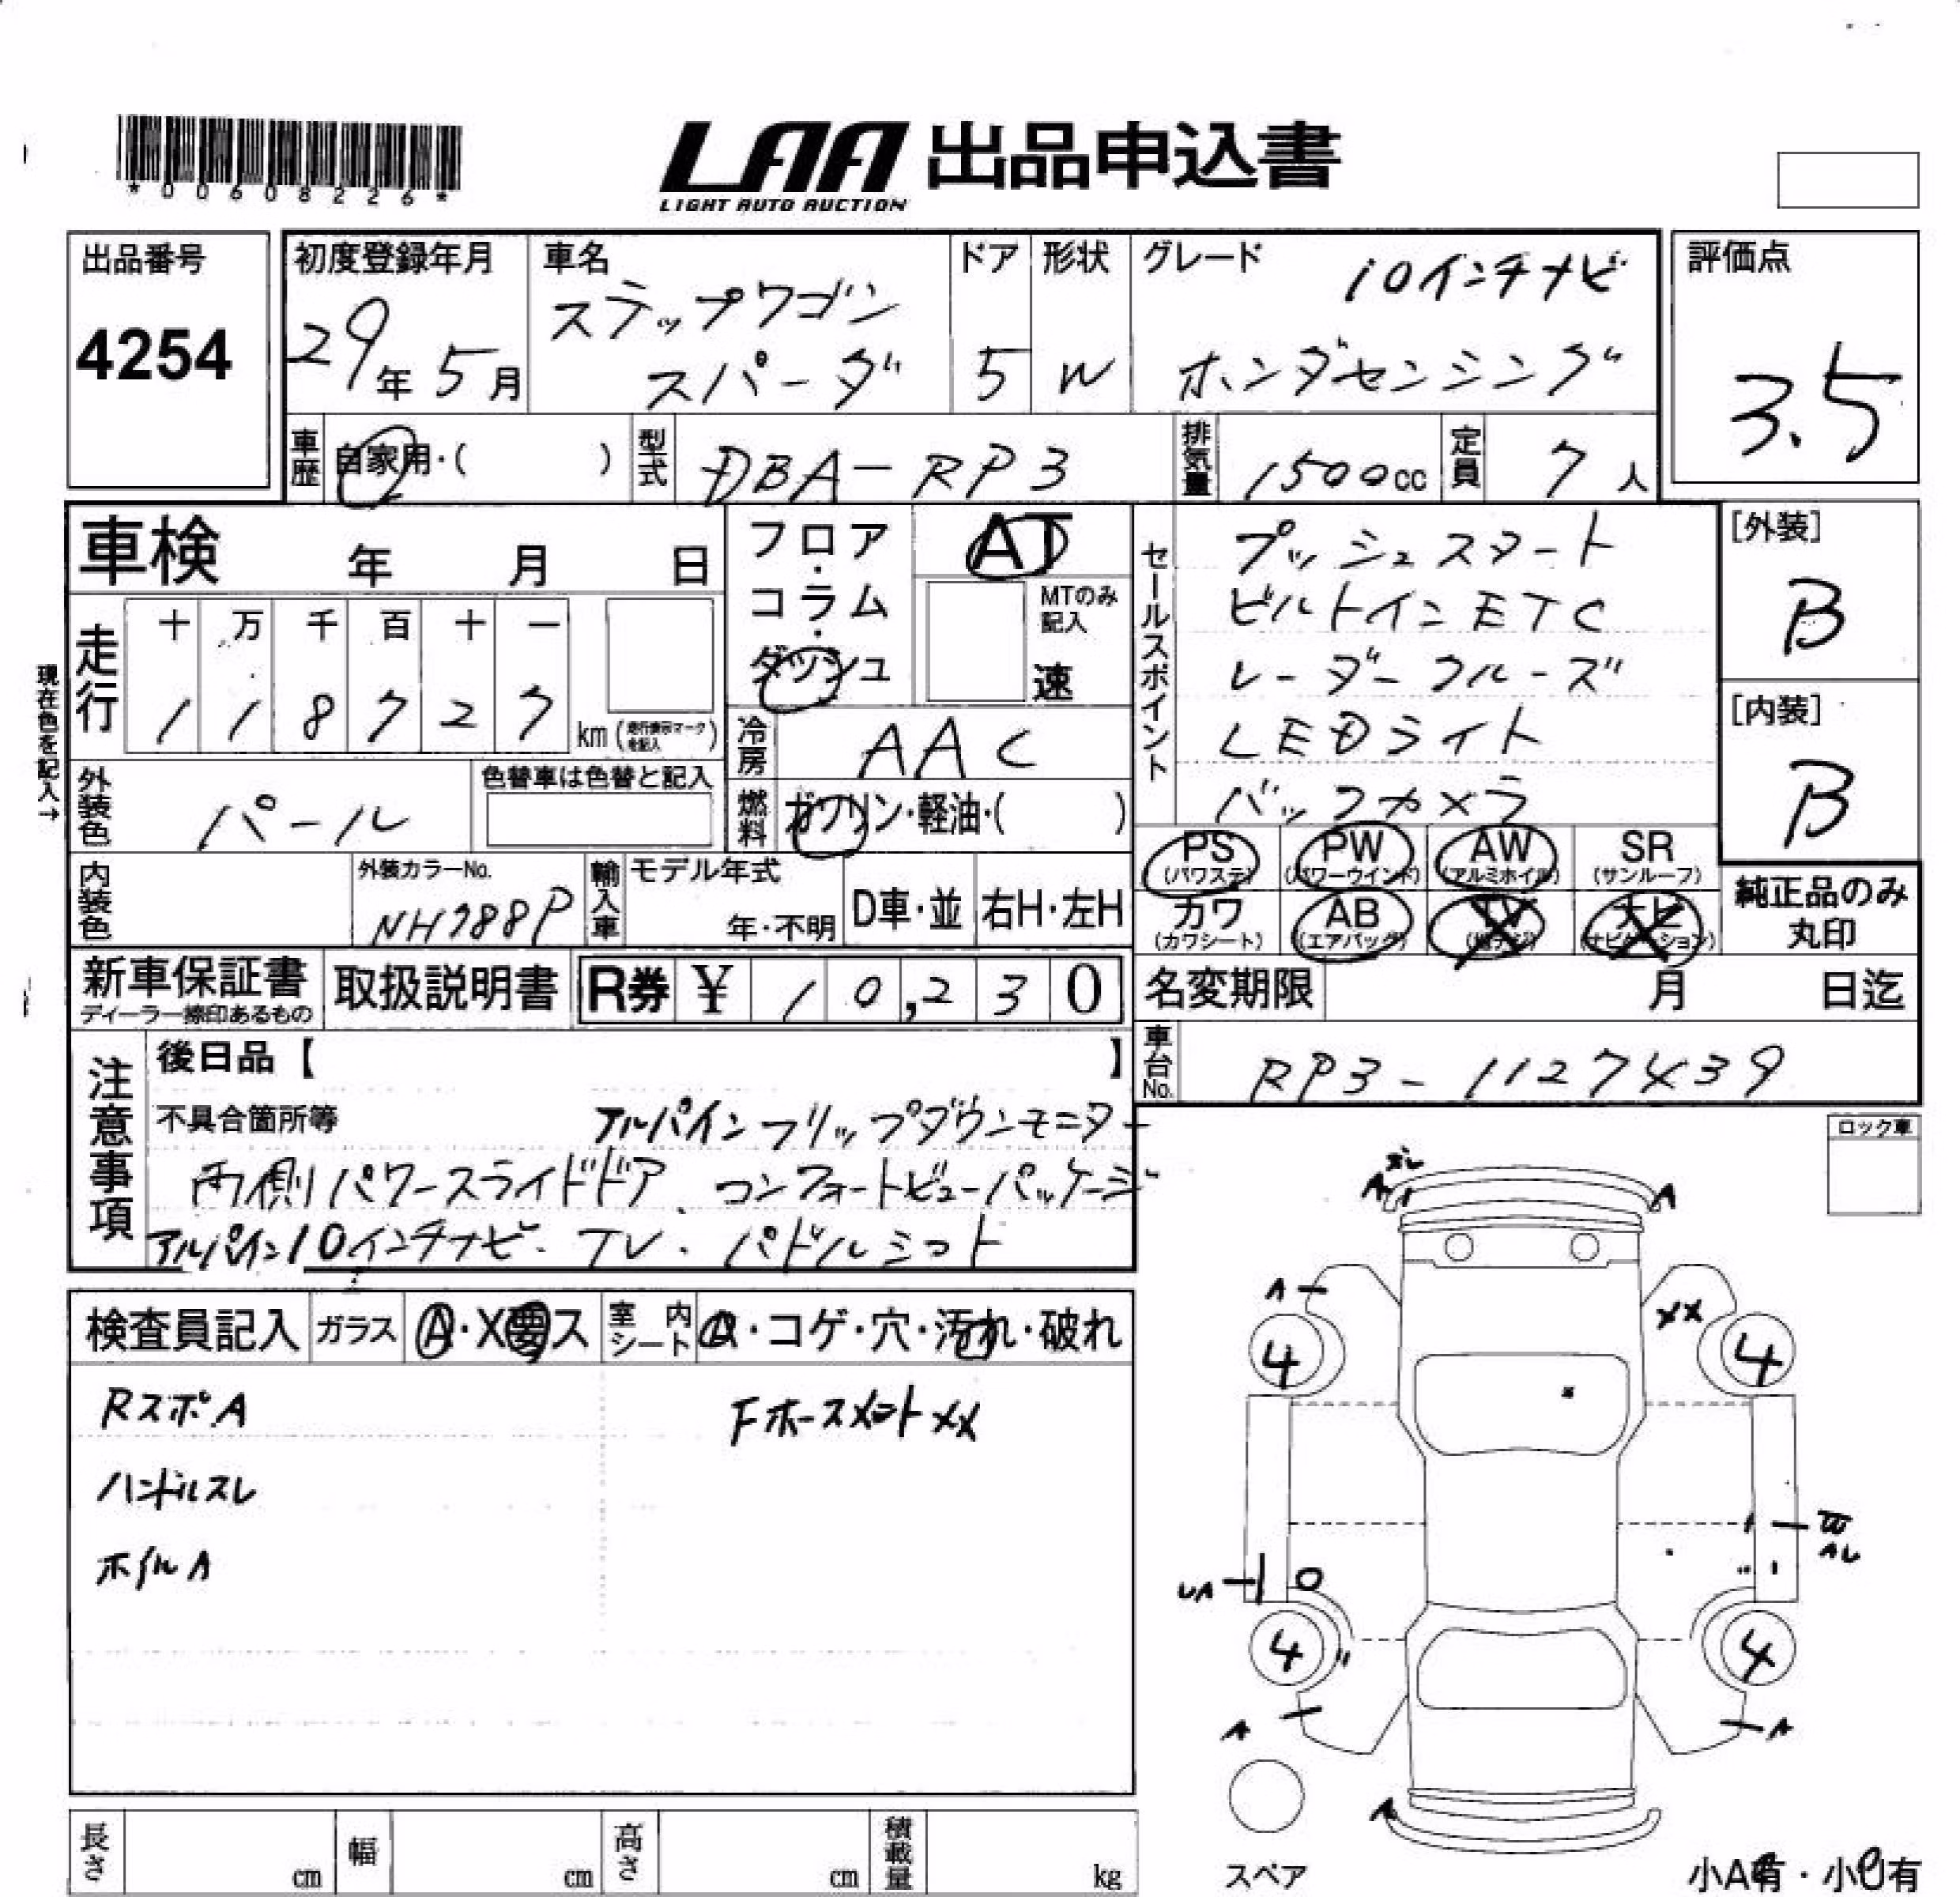 *00608226*
LAA 出品申込書
LIGHT AUTO AUCTION
出品番号
4254
初度登録年月
29年5月
車名
ステップワゴン
スパーダ
ドア
5
形状
W
グレード
10インチナビ
ホンダセンシング
評価点
3.5
車歴 自家用・( )
型式 DBA-RP3
排気量 1500cc
定員 7人
車検 年 月 日
フロア・コラム・ダッシュ
AT
MTのみ記入
速
セールスポイント
プッシュスタート
ビルトインETC
レーダークルーズ
LEDライト
バックカメラ
[外装]
B
[内装]
B
現在色を記入→
走行
十 万 千 百 十 一
1 1 8 7 2 7 km
冷房 AAC
外装色 パール
色替車は色替と記入
燃料 ガソリン・軽油・( )
PS (パワステ)
PW (パワーウインド)
AW (アルミホイル)
SR (サンルーフ)
カワ (カワシート)
AB (エアバッグ)
TV (地デジ)
ナビ (ナビゲーション)
純正品のみ
丸印
内装色
外装カラーNo.
NH788P
輸入車
モデル年式
年・不明
D車・並
右H・左H
新車保証書
ディーラー捺印あるもの
取扱説明書
R券 ¥ 10,230
名変期限 月 日迄
車台No. RP3-1127439
注意事項
後日品【 】
不具合箇所等
アルパインフリップダウンモニター
両側パワースライドドア、コンフォートビューパッケージ
アルパイン10インチナビ・TV・パドルシフト
ロック車
検査員記入
ガラス A・X要ス
室内シート
・コゲ・穴・汚れ・破れ
RスポA
Fホースメント XX
ハンドルスレ
ホイルA
A
A
XX
4
4
W
AU
UA
4
4
A
A
A
スペア
長さ cm
幅 cm
高さ cm
積載量 kg
小A有・小U有